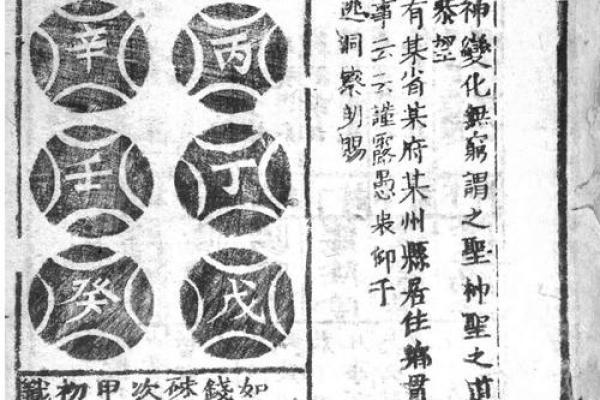 神變化無窮謂之聖神聖之道
恭望
有某省某府某州縣居住鄉貫
事云云謹露愚衷仰干
逃洞察明賜
丙
丁
戊
辛
壬
癸
如錢硃次甲初